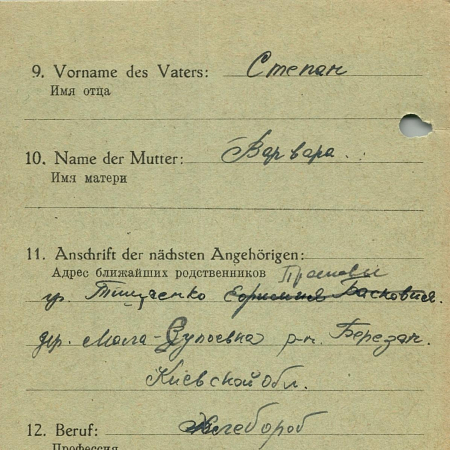 9. Vorname des Vaters: Степан
Имя отца
10. Name der Mutter: Варвара.
Имя матери
11. Anschrift der nächsten Angehörigen:
Адрес ближайших родственников
гр. Тищченко
дер. Мала-Супоевка р-н. Березан.
Киевской обл.
12. Beruf: Хлебороб
Профессия